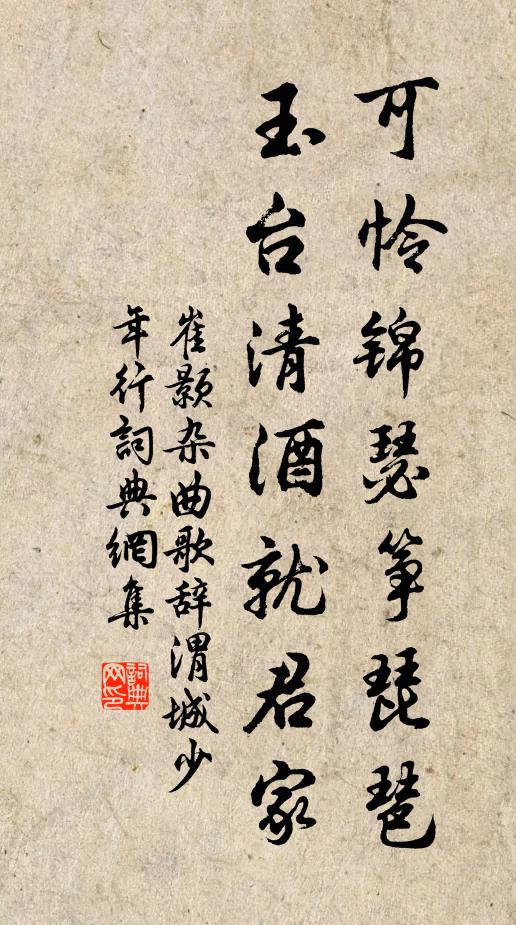 可怜锦瑟筝琵琶
玉台清酒就君家
崔颢杂曲歌辞渭城少
年行詞典網集
詞典
网印